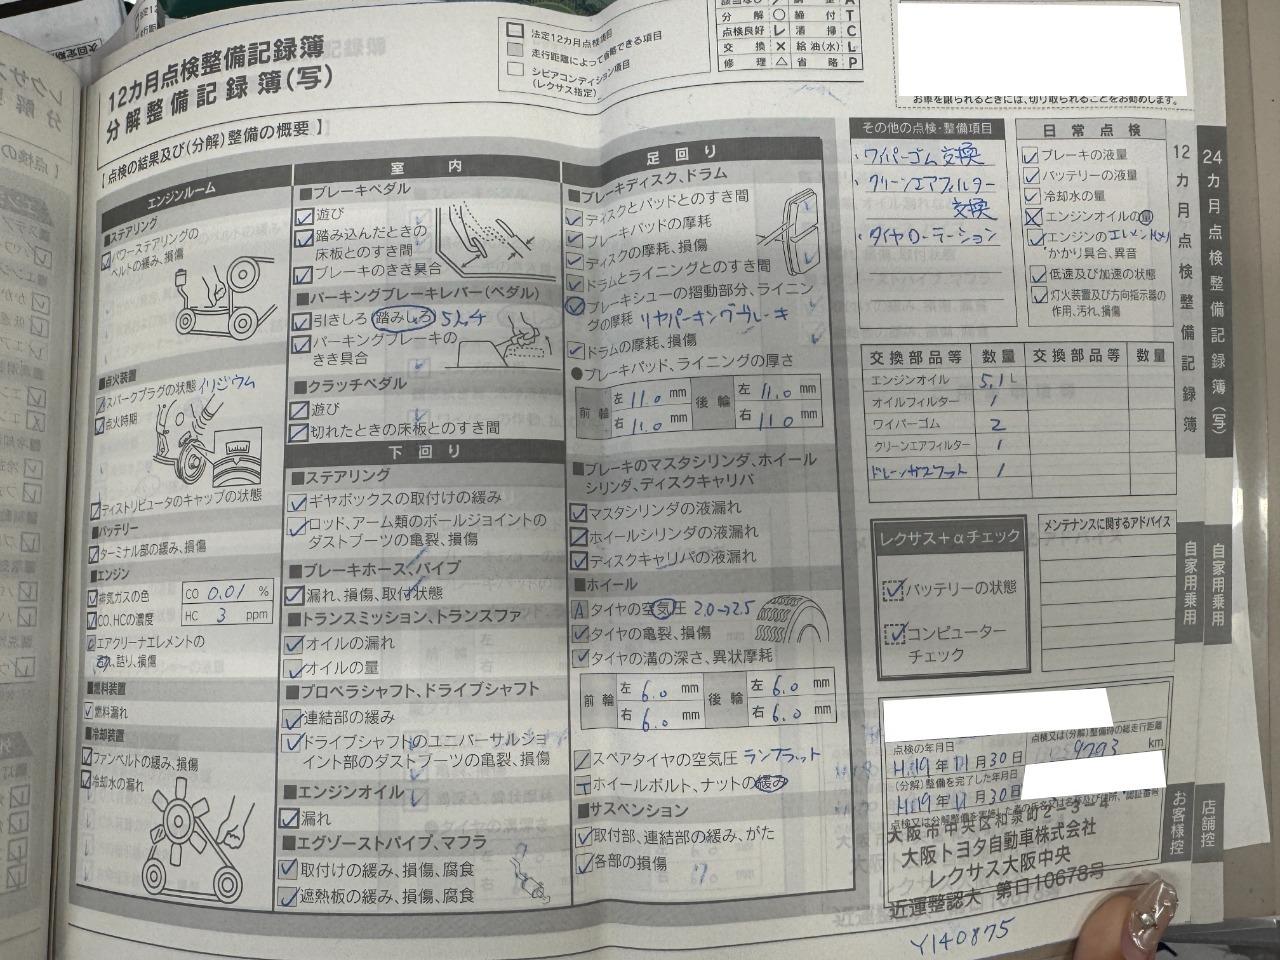 12カ月点検整備記録簿
分解整備記録簿(写)
法定12カ月点検項目
走行距離によって省略できる項目
シビアコンディション項目
(レクサス指定)
分解 ○ 締付 T
点検良好 レ 清掃 C
交換 × 給油(水) L
修理 △ 省略 P
お車を譲られるときには、切り取られることをお勧めします。
【 点検の結果及び(分解)整備の概要 】
エンジンルーム
■ステアリング
パワーステアリングの
ベルトの緩み、損傷
■点火装置
スパークプラグの状態 イリジウム
点火時期
ディストリビュータのキャップの状態
■バッテリー
ターミナル部の緩み、損傷
■エンジン
排気ガスの色
CO 0.01 %
CO、HCの濃度
HC 3 ppm
エアクリーナエレメントの
汚れ、詰り、損傷
■燃料装置
燃料漏れ
■冷却装置
ファンベルトの緩み、損傷
冷却水の漏れ
室内
■ブレーキペダル
遊び
踏み込んだときの
床板とのすき間
ブレーキのきき具合
■パーキングブレーキレバー(ペダル)
引きしろ(踏みしろ)
パーキングブレーキの
きき具合
■クラッチペダル
遊び
切れたときの床板とのすき間
下回り
■ステアリング
ギヤボックスの取付けの緩み
ロッド、アーム類のボールジョイントの
ダストブーツの亀裂、損傷
■ブレーキホース、パイプ
漏れ、損傷、取付状態
■トランスミッション、トランスファ
オイルの漏れ
オイルの量
■プロペラシャフト、ドライブシャフト
連結部の緩み
ドライブシャフトのユニバーサルジョ
イント部のダストブーツの亀裂、損傷
■エンジンオイル
漏れ
■エグゾーストパイプ、マフラ
取付けの緩み、損傷、腐食
遮熱板の緩み、損傷、腐食
足回り
■ブレーキディスク、ドラム
ディスクとパッドとのすき間
ブレーキパッドの摩耗
ディスクの摩耗、損傷
ドラムとライニングとのすき間
ブレーキシューの摺動部分、ライニン
グの摩耗 リヤパーキングブレーキ
ドラムの摩耗、損傷
●ブレーキパッド、ライニングの厚さ
前輪 左 11.0 mm 後輪 左 11.0 mm
右 11.0 mm 右 11.0 mm
■ブレーキのマスタシリンダ、ホイール
シリンダ、ディスクキャリパ
マスタシリンダの液漏れ
ホイールシリンダの液漏れ
ディスクキャリパの液漏れ
■ホイール
A タイヤの空気圧 2.0→2.5
タイヤの亀裂、損傷
タイヤの溝の深さ、異状摩耗
前輪 左 6.0 mm 後輪 左 6.0 mm
右 6.0 mm 右 6.0 mm
スペアタイヤの空気圧 ランフラット
T ホイールボルト、ナットの緩み
■サスペンション
取付部、連結部の緩み、がた
各部の損傷
その他の点検・整備項目
・ワイパーゴム交換
・クリーンエアフィルター
交換
・タイヤローテーション
日常点検
ブレーキの液量
バッテリーの液量
冷却水の量
エンジンオイルの量
エンジンの エレメント
かかり具合、異音
低速及び加速の状態
灯火装置及び方向指示器の
作用、汚れ、損傷
交換部品等 数量 交換部品等 数量
エンジンオイル 5.1 L
オイルフィルター 1
ワイパーゴム 2
クリーンエアフィルター 1
ドレーンガスケット 1
レクサス+αチェック
バッテリーの状態
コンピューター
チェック
メンテナンスに関するアドバイス
点検の年月日
H.19年 11月 30日
点検又は(分解)整備時の総走行距離
9793 km
(分解)整備を完了した年月日
H.19年 11月 30日
大阪市中央区和泉町2-3-4
大阪トヨタ自動車株式会社
レクサス大阪中央
近運整認大 第日10678号
Y140875
12カ月点検整備記録簿
自家用乗用
お客様控
24カ月点検整備記録簿(写)
自家用乗用
店舗控